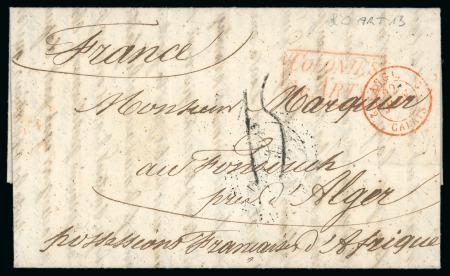 RO ART. 13
France
COLONIES
ART.
CALAIS
Monsieur Marquier
au Fondouck
près d'Alger
possessions Françaises d'Afrique